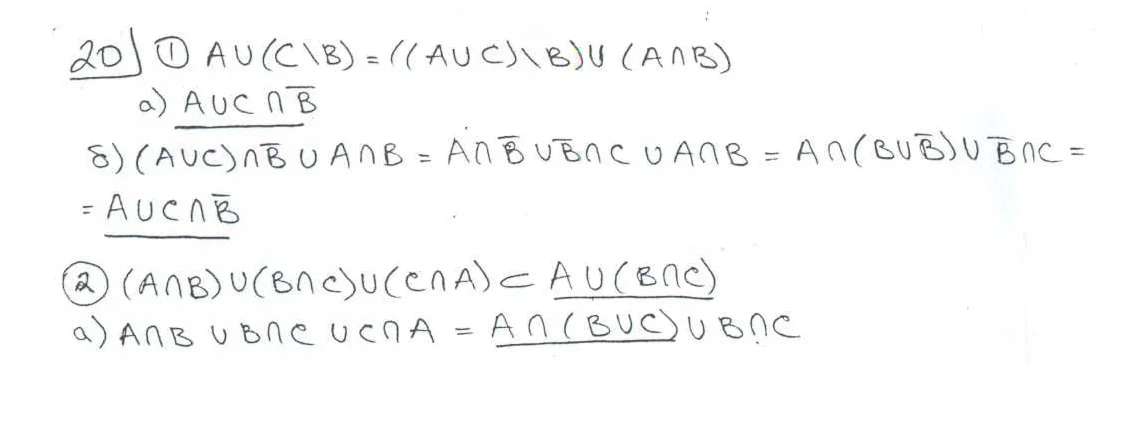 20) ① A∪(C\B) = ((A∪C)\B)∪(A∩B)
а) A∪C∩B̅
б) (A∪C)∩B̅ ∪ A∩B = A∩B̅ ∪ B̅∩C ∪ A∩B = A∩(B∪B̅)∪ B̅∩C =
= A∪C∩B̅
② (A∩B)∪(B∩C)∪(C∩A) ⊂ A∪(B∩C)
а) A∩B ∪ B∩C ∪ C∩A = A∩(B∪C)∪ B∩C